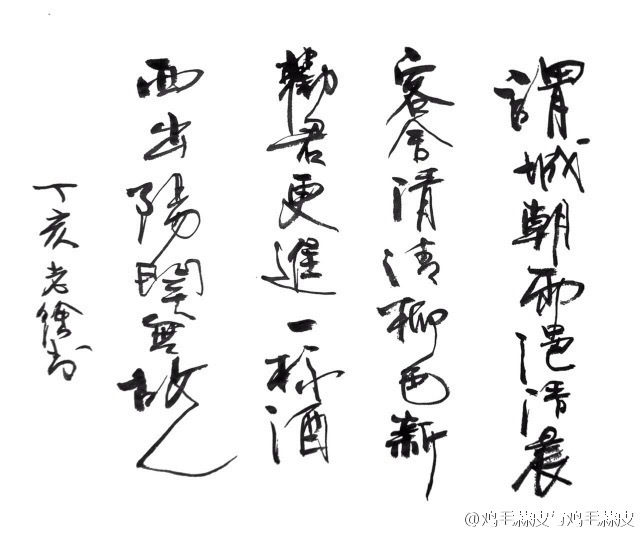 謂城朝雨浥清晨
客舍清清柳色新
勸君更進一杯酒
西出陽関無故人
丁亥老徐书
@鸡毛蒜皮与鸡毛蒜皮